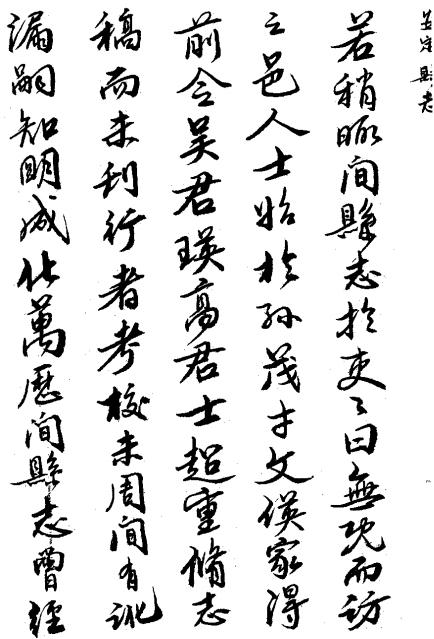 若稍暇間縣志於吏々曰無既而訪
之邑人士始於孫茂才文僕家得
前令吳君瑛高君士超重脩志
稿而未刊行者考校未周間有訛
漏嗣知明成化萬歷間縣志曾經